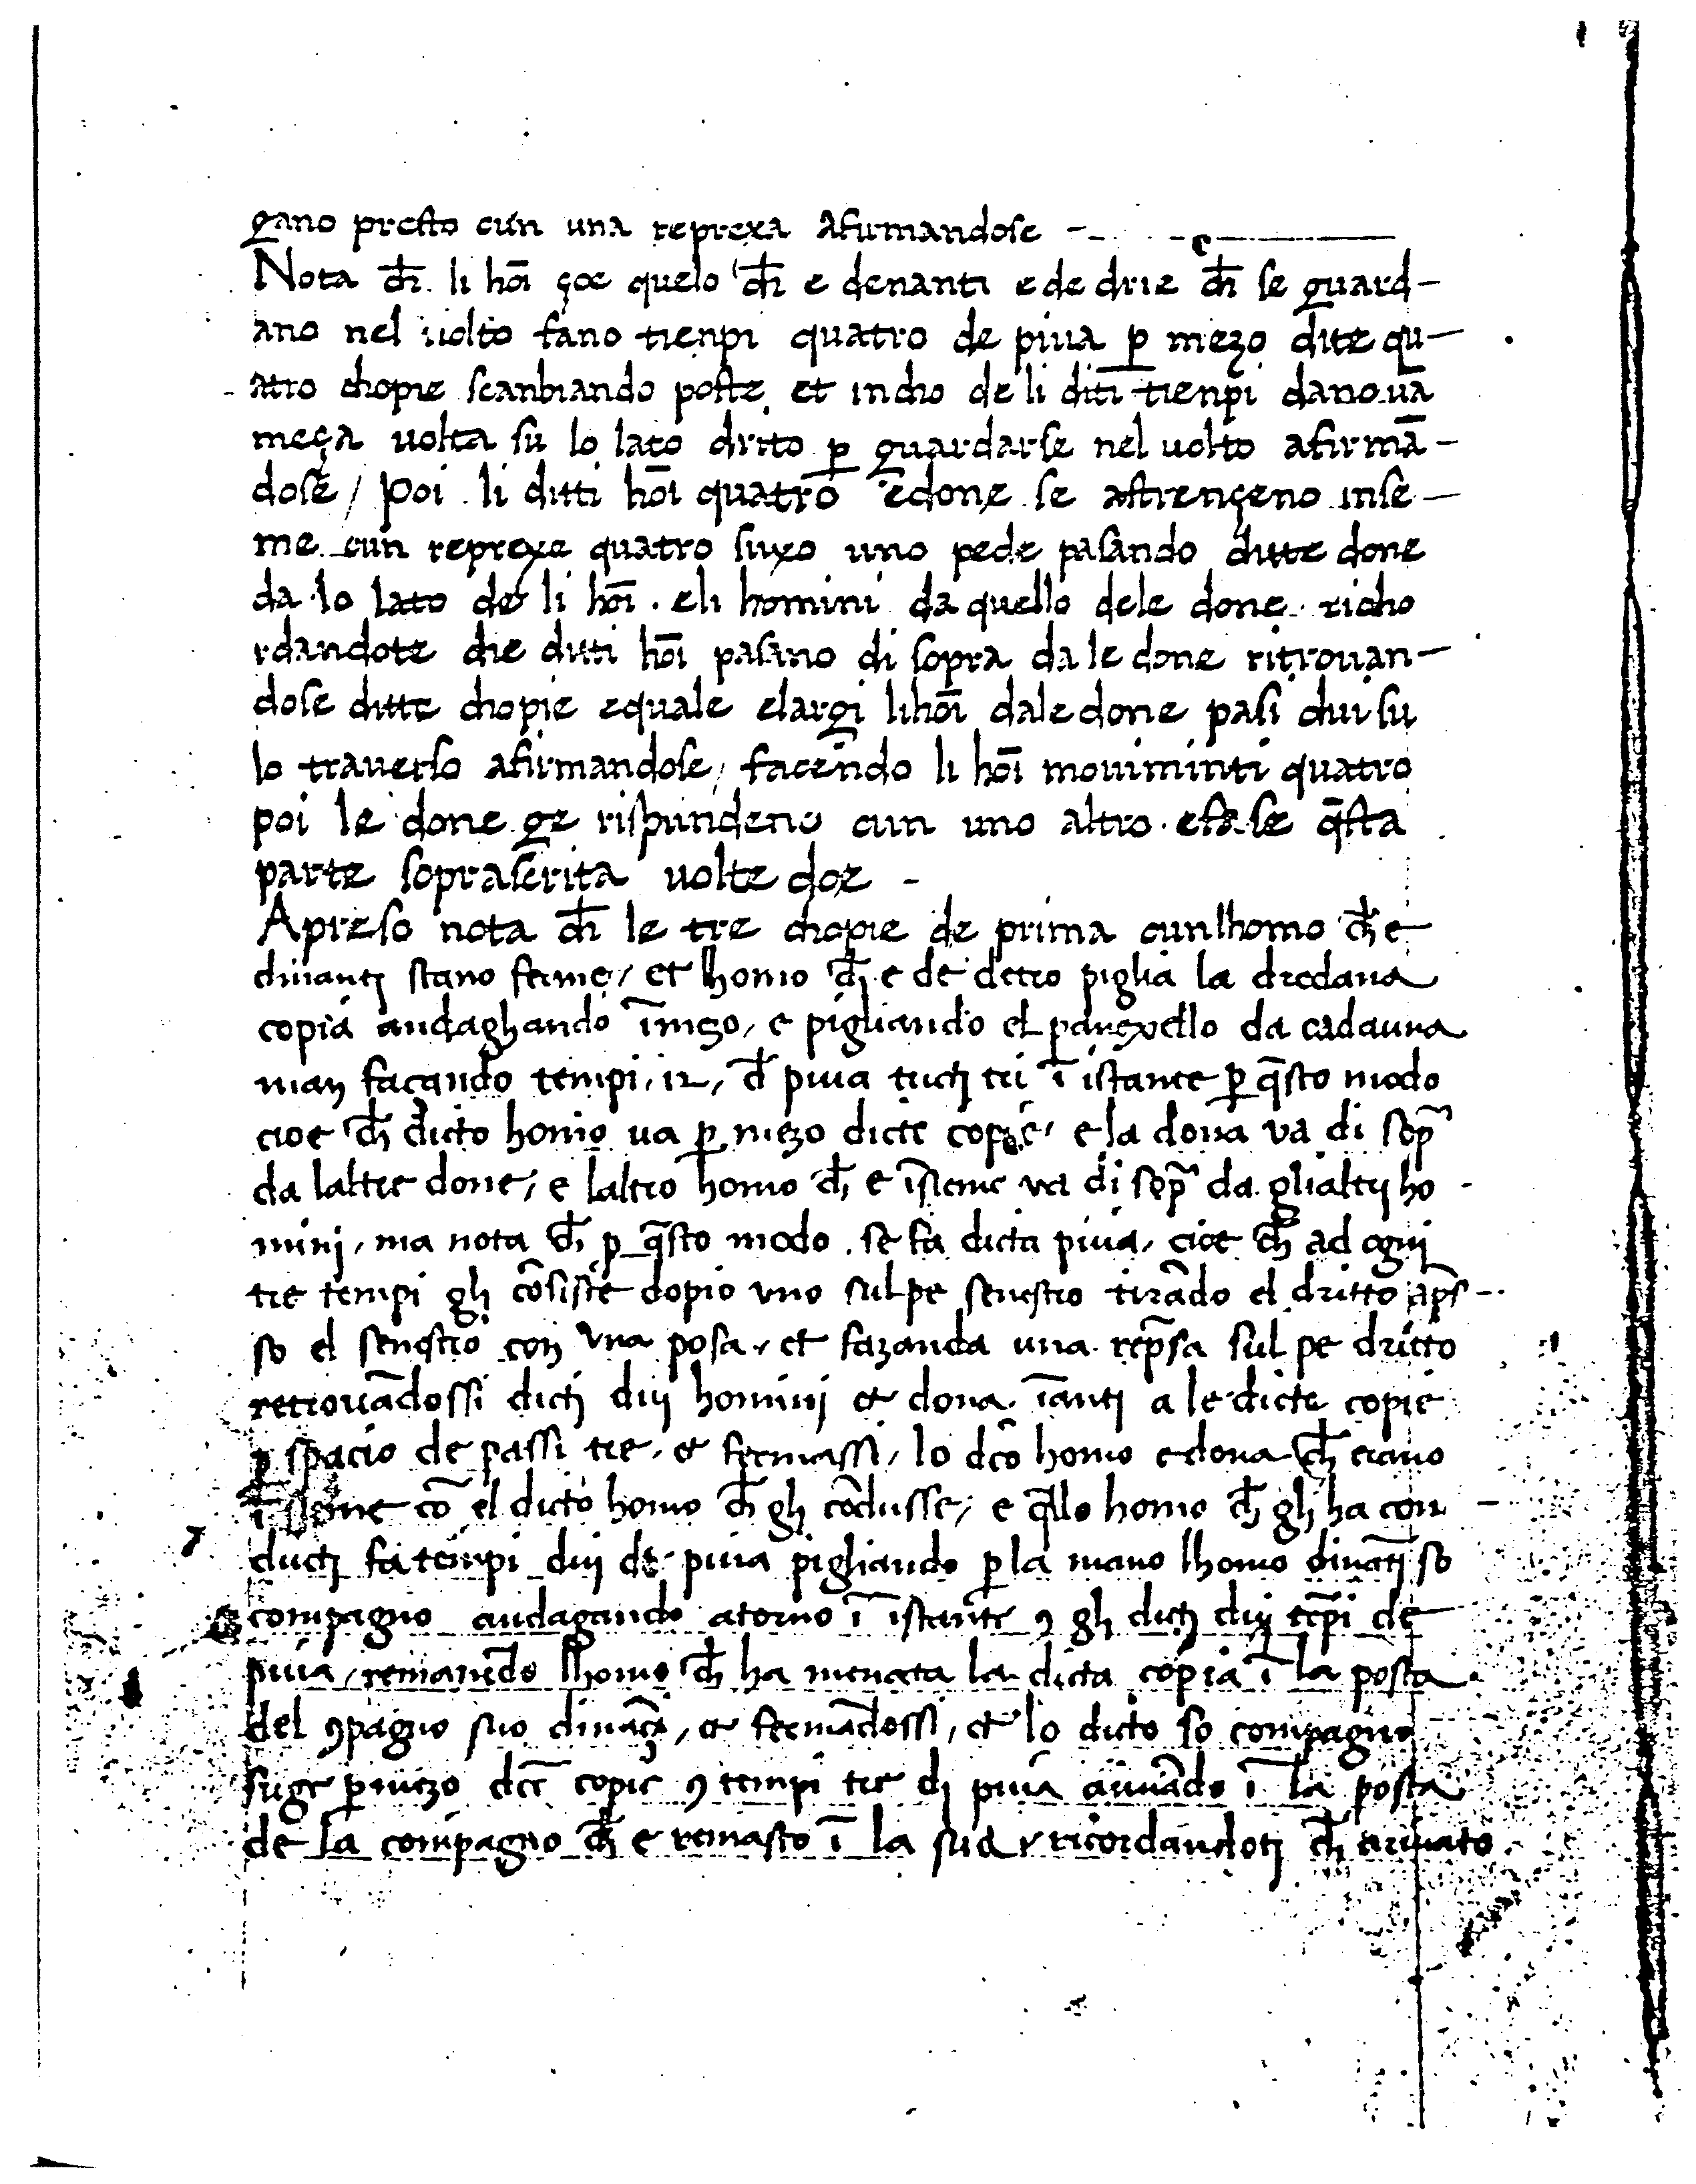 gano presto cun una reprexa afirmandose -
Nota ch̄ li hoī çoe quelo ch̄ e denanti e de drie ch̄ se guard-
ano nel uolto fano tienpi quatro de piua p̱ mezo dite qu-
atro chopie scanbiando poste et incho de li diti tienpi dano uā
meça uolta su lo lato drito p̱ guardarse nel uolto afirmā-
dose / poi li ditti hoī quatro e done se astrençeno inse-
me cun reprexe quatro suxo uno pede pasando ditte done
da lo lato de li hoī . e li homini da quello dele done richo
rdandote che diti hoī pasano di sopra da le done ritrouan-
dose ditte chopie equale e largi li hoī dale done pasi dui su
lo trauerso afirmandose / facendo li hoī mouiminti quatro
poi le done ge rispundeno cun uno altro . e fase q̄sta
parte soprascrita uolte doe -
Apreso nota ch̄ le tre chopie de prima cun lhomo ch̄ e
dinantj stano ferme / et lhomo ch̄ e de detro piglia la dredana
copia andaghando ī mezo / e pigliando el panexello da cadauna
man façando tempi .12. d̄ piua tuctj tri ī istante p̱ q̄sto modo
cioe ch̄ dicto homo ua p̱ mezo dicte copie / e la dona va di sop̄
da laltre done / e laltro homo ch̄ e īsieme va di sop̄ da glialtrj ho -
minj / ma nota ch̄ p̱ q̄sto modo . se fa dicta piua / cioe ch̄ ad ogni
tre tempi gli cōsiste dopio vno sul pe senestro tirādo el dritto ap̄s -
so el senestro con vna posa / et fazanda una rep̄sa sul pe dritto
retrouādossi dictj duj hominj et dona īantj a le dicte copie
p̱ spacio de passi tre / et fermassi / lo dc̄o homo e dona ch̄ erano
īsieme cō el dicto homo ch̄ gli cōdusse / e q̄llo homo ch̄ gli ha con -
ductj fa tempi duj de piua pigliando p̱ la mano lhomo dināti so
compagno andagando atorno ī istante ꝯ gli dictj duj tēpi de
piua / remanēdo lhomo ch̄ ha menata la dicta copia ī la posta
del ꝯpagno suo dināçi / et fermādossi / et lo dicto so compagno
fuge p̱ mezo dcē copie ꝯ tempi tre dj piua aiuādo ī la posta
de la compagno ch̄ e remasto ī la sua / ricordandotj ch̄ ariuato